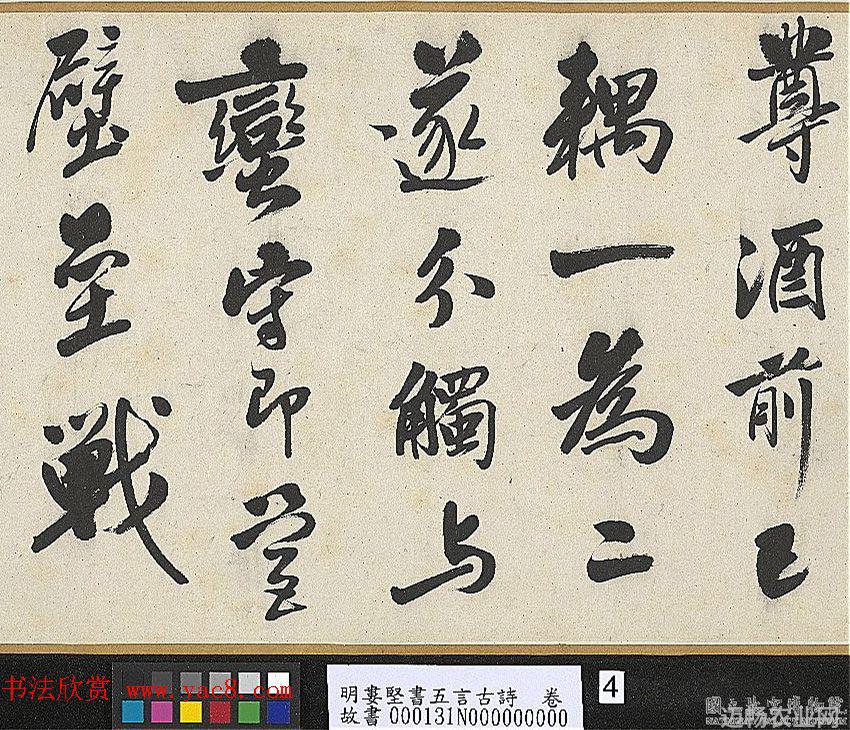 尊酒前已
耦一為二
遂分觸与
蠻守即營
壁壘戰
书法欣赏 www.yac8.com
明婁堅書五言古詩 卷
故書 000131N000000000
4